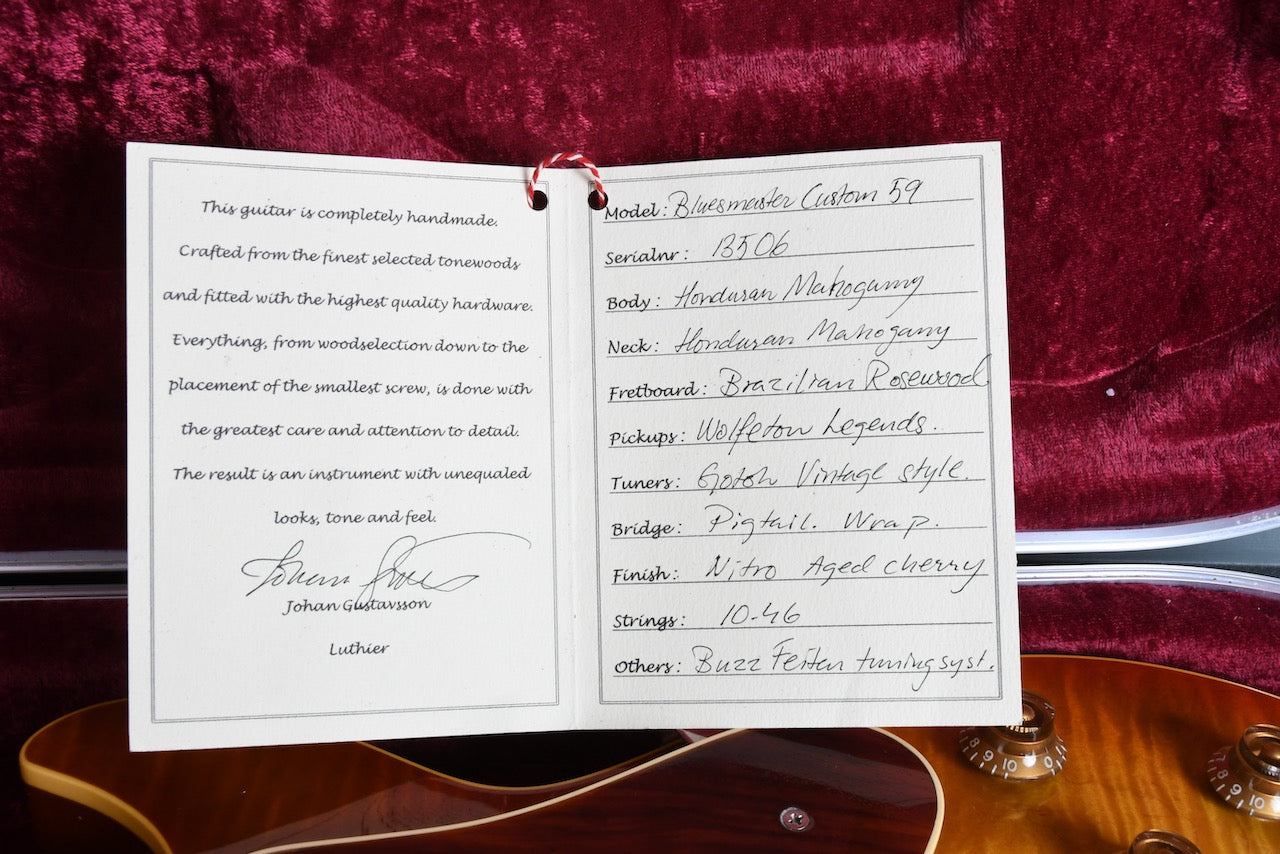 This guitar is completely handmade.
Crafted from the finest selected tonewoods
and fitted with the highest quality hardware.
Everything, from woodselection down to the
placement of the smallest screw, is done with
the greatest care and attention to detail.
The result is an instrument with unequaled
looks, tone and feel.
Johan Gustavsson
Luthier
Model: Bluesmaster Custom 59
Serialnr: B506
Body: Honduran Mahogany
Neck: Honduran Mahogany
Fretboard: Brazilian Rosewood
Pickups: Wolfeton Legends.
Tuners: Gotoh Vintage style.
Bridge: Pigtail. Wrap.
Finish: Nitro Aged cherry
Strings: 10-46
Others: Buzz Feiten tuning syst.
8 9 10 0
8 9 10